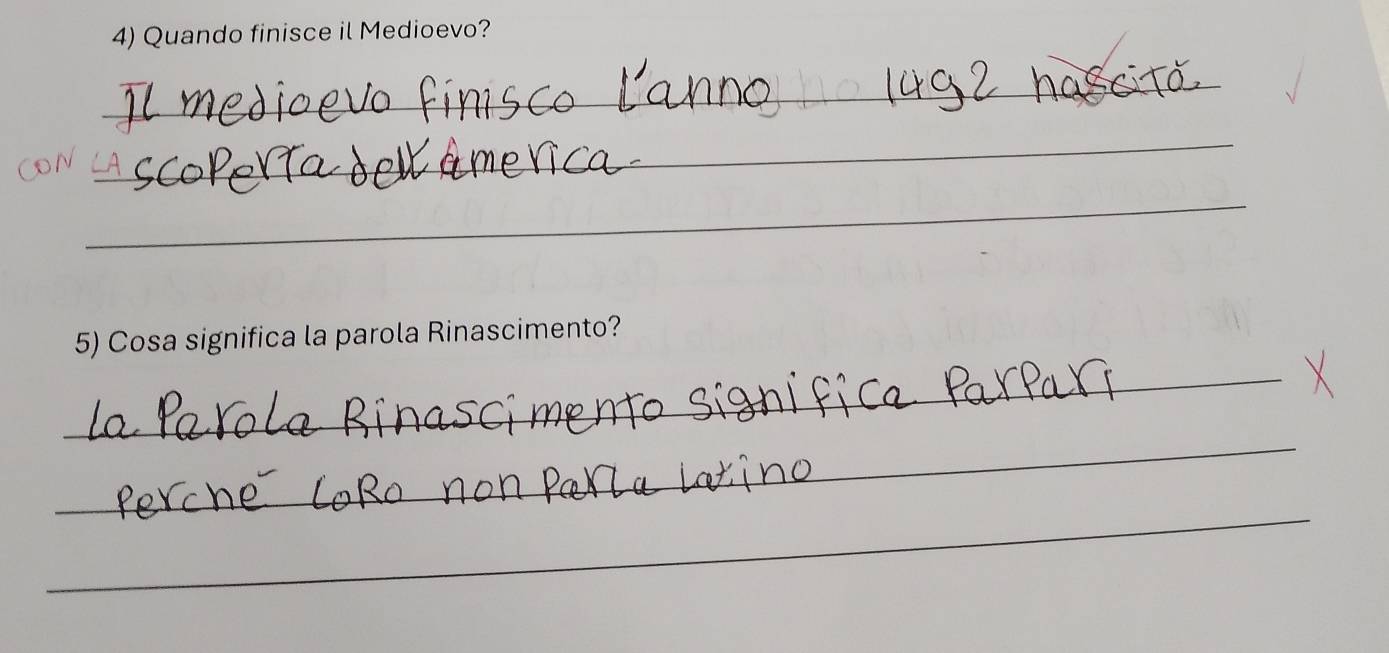 4) Quando finisce il Medioevo?
Il medioevo finisco l'anno 1492 nascità
CON LA scoperta dell'America.
5) Cosa significa la parola Rinascimento?
la Parola Rinascimento significa Parpari
Perché loRo non Parla latino